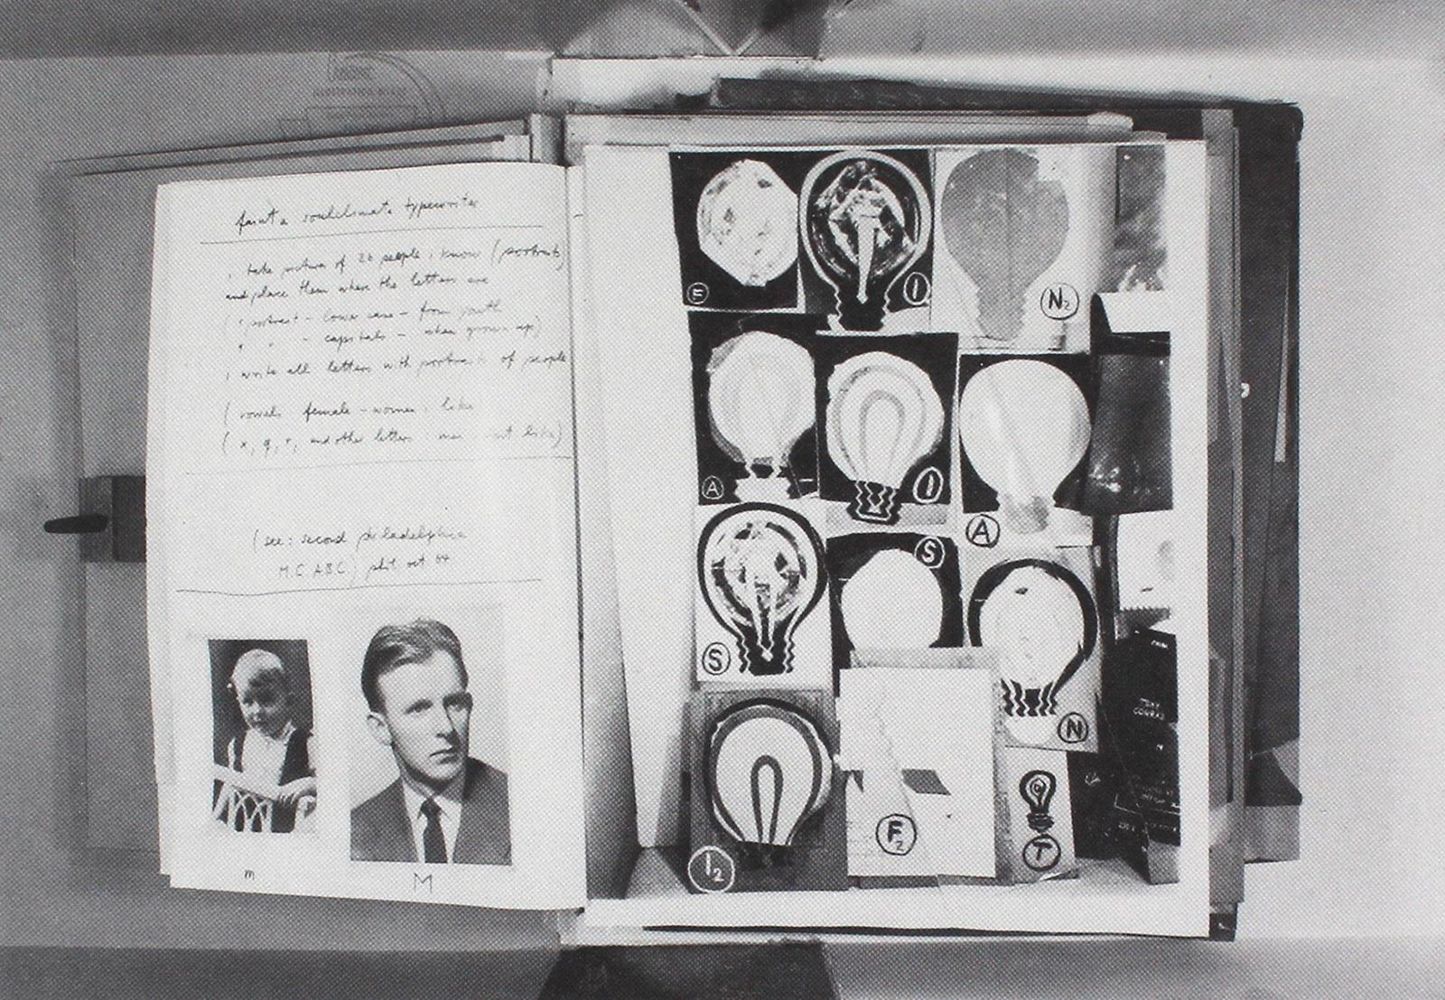 MORE
typewriter
i take picture of 26 people i know (portraits)
and place them where the letters are
( portrait - lower case - from youth
" " - capitals - when grown up)
i write all letters with portraits of people
( vowels female - women i like
( x, q, r, and other letters : men like)
(see: second philadelphia
M.C A.B.C.) phil oct 64
m
M
E
I
N2
A
I
A
S
S
N
I2
F2
T